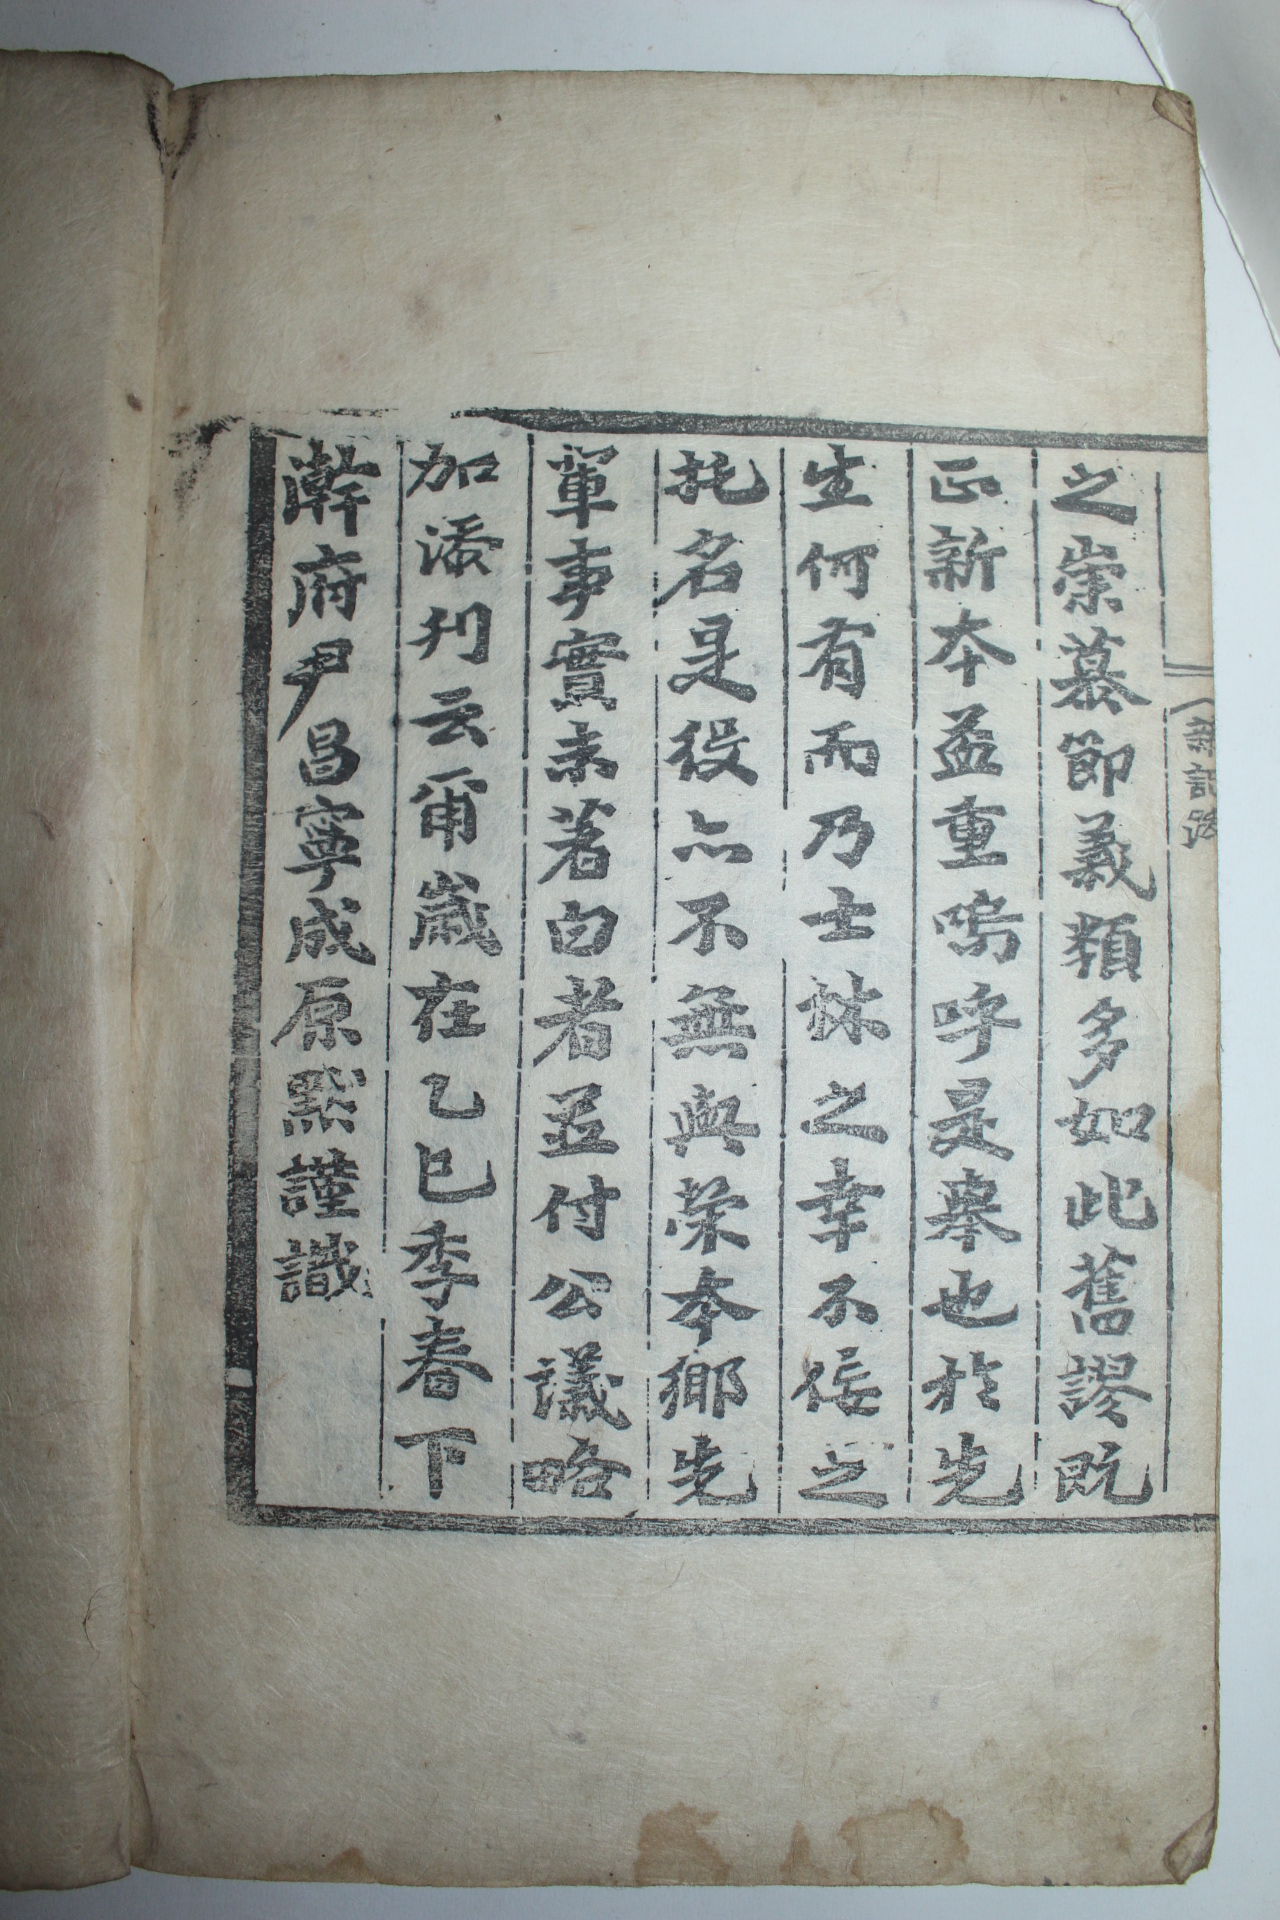 之崇慕節義類多如此舊謬既
正新本益重嗚呼是擧也於先
生何有而乃士林之幸不佞之
托名是役亦不無與榮本鄕先
輩事實未著白者並付公議略
加添刊云爾歲在乙巳季春下
澣府尹昌寧成原黙謹識
新記跋